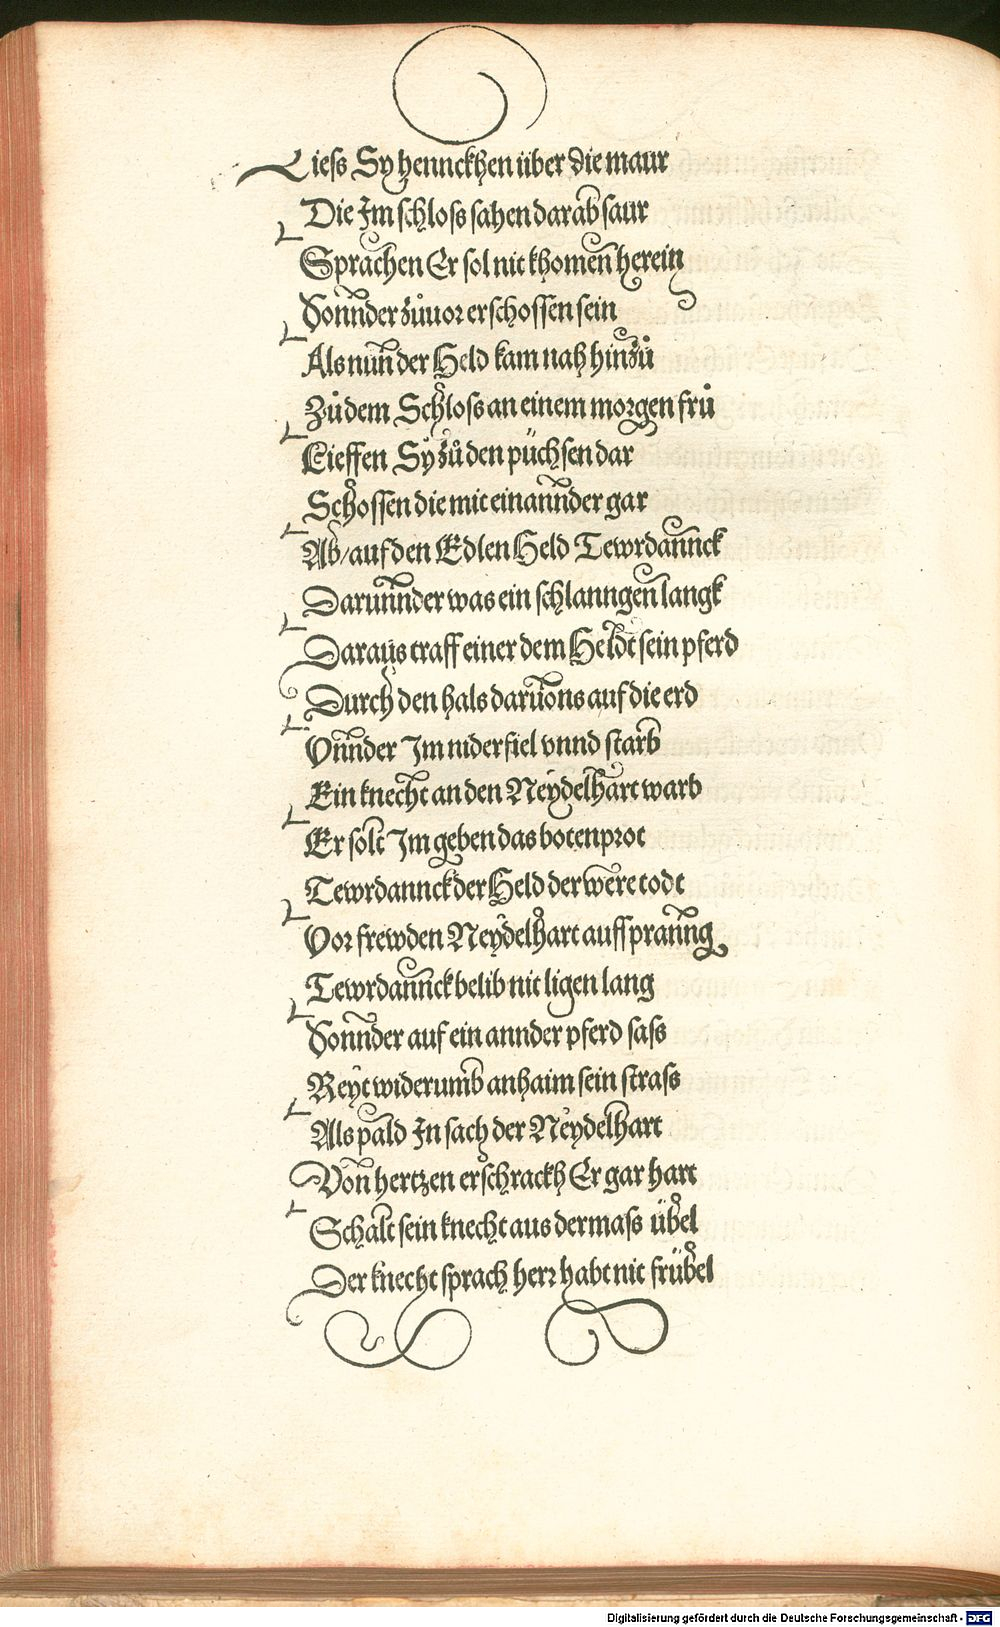 Liess Sy hennckhen über die maur
Die Im schloss sahen darab saur
Sprachen Er sol nit khomen herein
Sonnder zůuor erschossen sein
Als nun der Held kam nah hinzů
Zů dem Schloss an einem morgen frů
Lieffen Sÿ zů den püchsen dar
Schossen die mit einannder gar
Ab/auf den Edlen Held Tewrdannck
Darunnder was ein schlanngen langk
Daraus traff einer dem Heldt sein pferd
Durch den hals daruons auf die erd
Vnnder Im niderfiel vnnd starb
Ein knecht an den Neydelhart warb
Er solt Im geben das botenprot
Tewrdannck der Held der were todt
Vor frewden Neydelhart auffspranng
Tewrdannck belib nit ligen lang
Sonnder auf ein annder pferd sass
Reyt widerumb anhaim sein strass
Als pald In sach der Neydelhart
Von hertzen erschrackh Er gar hart
Schalt sein knecht aus dermass übel
Der knecht sprach herr habt nit frübel
Digitalisierung gefördert durch die Deutsche Forschungsgemeinschaft - DFG